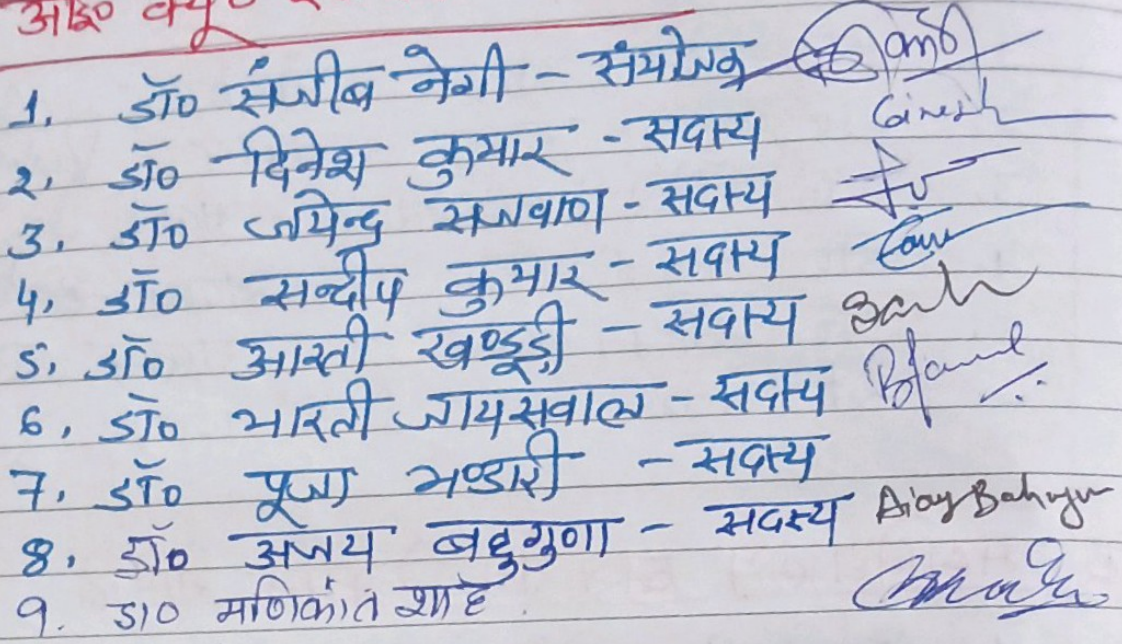 आइ० क्यू०
1. डॉ० संजीब नेगी - संयोजक
2. डॉ० दिनेश कुमार - सदस्य Dinesh
3. डॉ० जयेन्द्र सजवाण - सदस्य
4. डॉ० सन्दीप कुमार - सदस्य
5. डॉ० आरती खण्डूड़ी - सदस्य
6. डॉ० भारती जायसवाल - सदस्य
7. डॉ० पूजा भण्डारी - सदस्य
8. डॉ० अजय बहुगुणा - सदस्य Ajay Bahuguna
9. डा० मणिकांत शाह